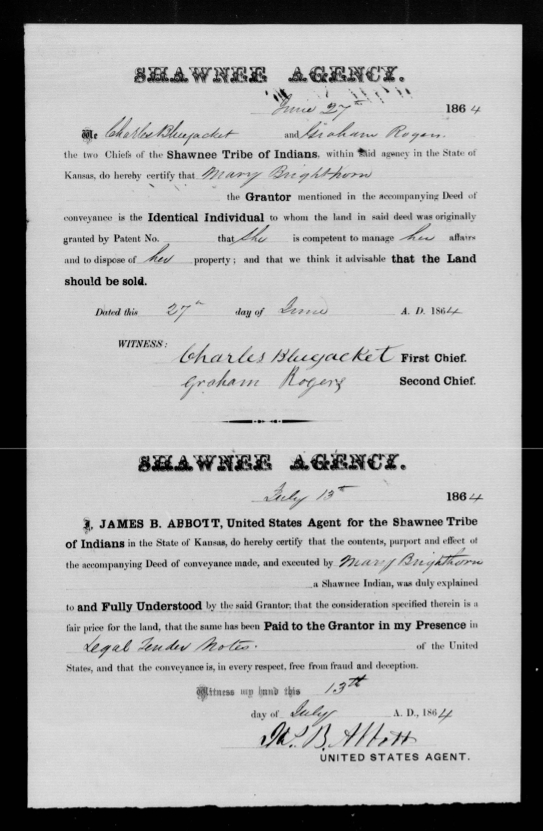 SHAWNEE AGENCY.
June 27th 1864
We Charles Bluejacket and Graham Rogers.
the two Chiefs of the Shawnee Tribe of Indians, within said agency in the State of
Kansas, do hereby certify that Mary Brighthorn
the Grantor mentioned in the accompanying Deed of
conveyance is the Identical Individual to whom the land in said deed was originally
granted by Patent No. that She is competent to manage her affairs
and to dispose of her property; and that we think it advisable that the Land
should be sold.
Dated this 27th day of June A. D. 1864
WITNESS:
Charles Bluejacket First Chief.
Graham Rogers Second Chief.
SHAWNEE AGENCY.
July 13th 1864
I, JAMES B. ABBOTT, United States Agent for the Shawnee Tribe
of Indians in the State of Kansas, do hereby certify that the contents, purport and effect of
the accompanying Deed of conveyance made, and executed by Mary Brighthorn
a Shawnee Indian, was duly explained
to and Fully Understood by the said Grantor; that the consideration specified therein is a
fair price for the land, that the same has been Paid to the Grantor in my Presence in
Legal Tender Notes. of the United
States, and that the conveyance is, in every respect, free from fraud and deception.
Witness my hand this 13th
day of July A. D., 1864
Jas. B. Abbott
UNITED STATES AGENT.